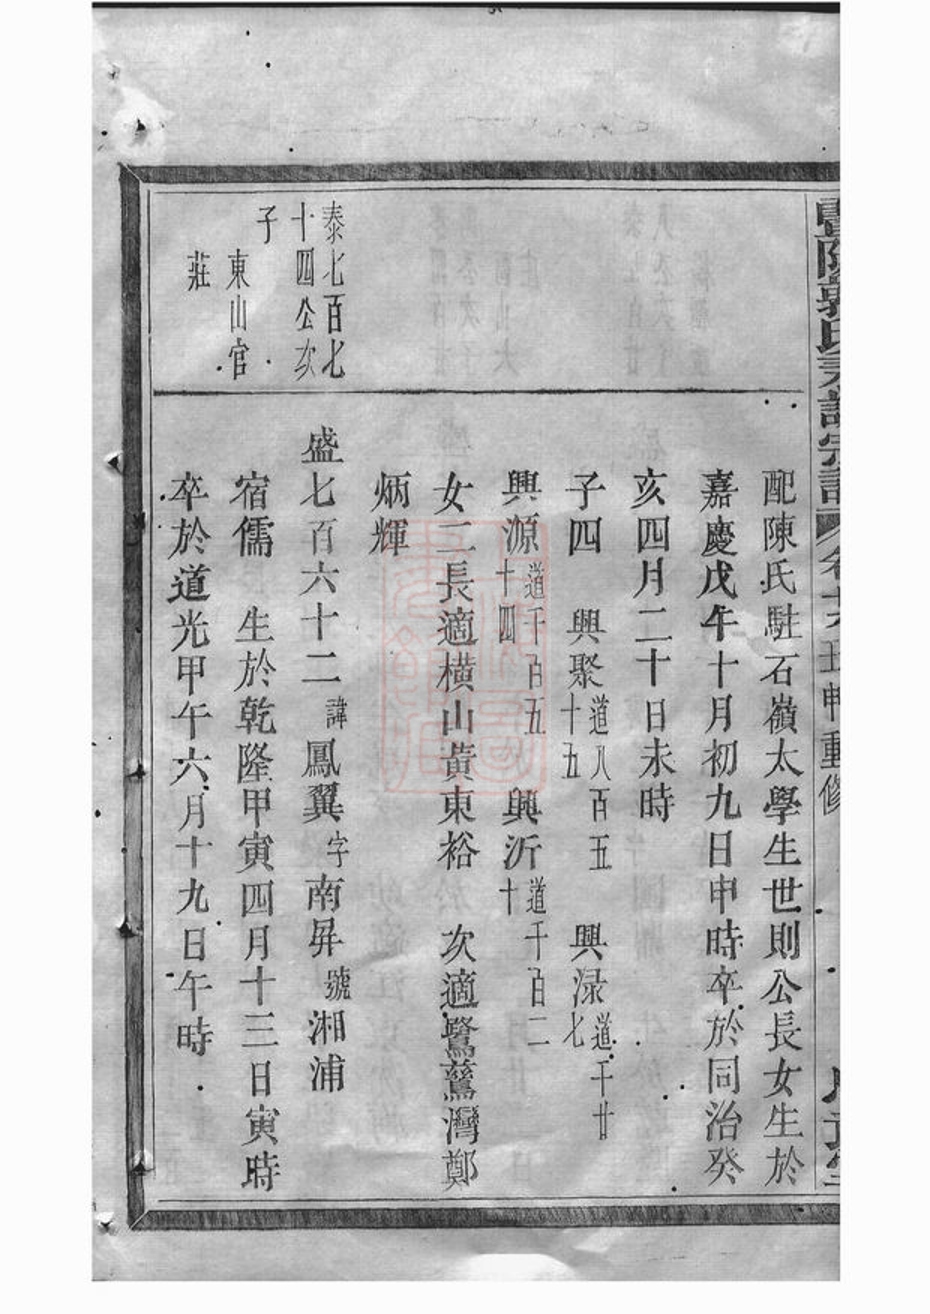 暨陽郭氏宗譜
配陳氏駐石嶺太學生世則公長女生於
嘉慶戊午十月初九日申時卒於同治癸
亥四月二十日未時
子四　興聚道八百五十五　興淥道千廿七
興源道千百五十四　興沂道千百二十
女二長適橫山黃東裕　次適鷺鷥灣鄭
炳輝
泰七百七
十四公次
子
東山官
莊
盛七百六十二諱鳳翼字南屏號湘浦
宿儒　生於乾隆甲寅四月十三日寅時
卒於道光甲午六月十九日午時